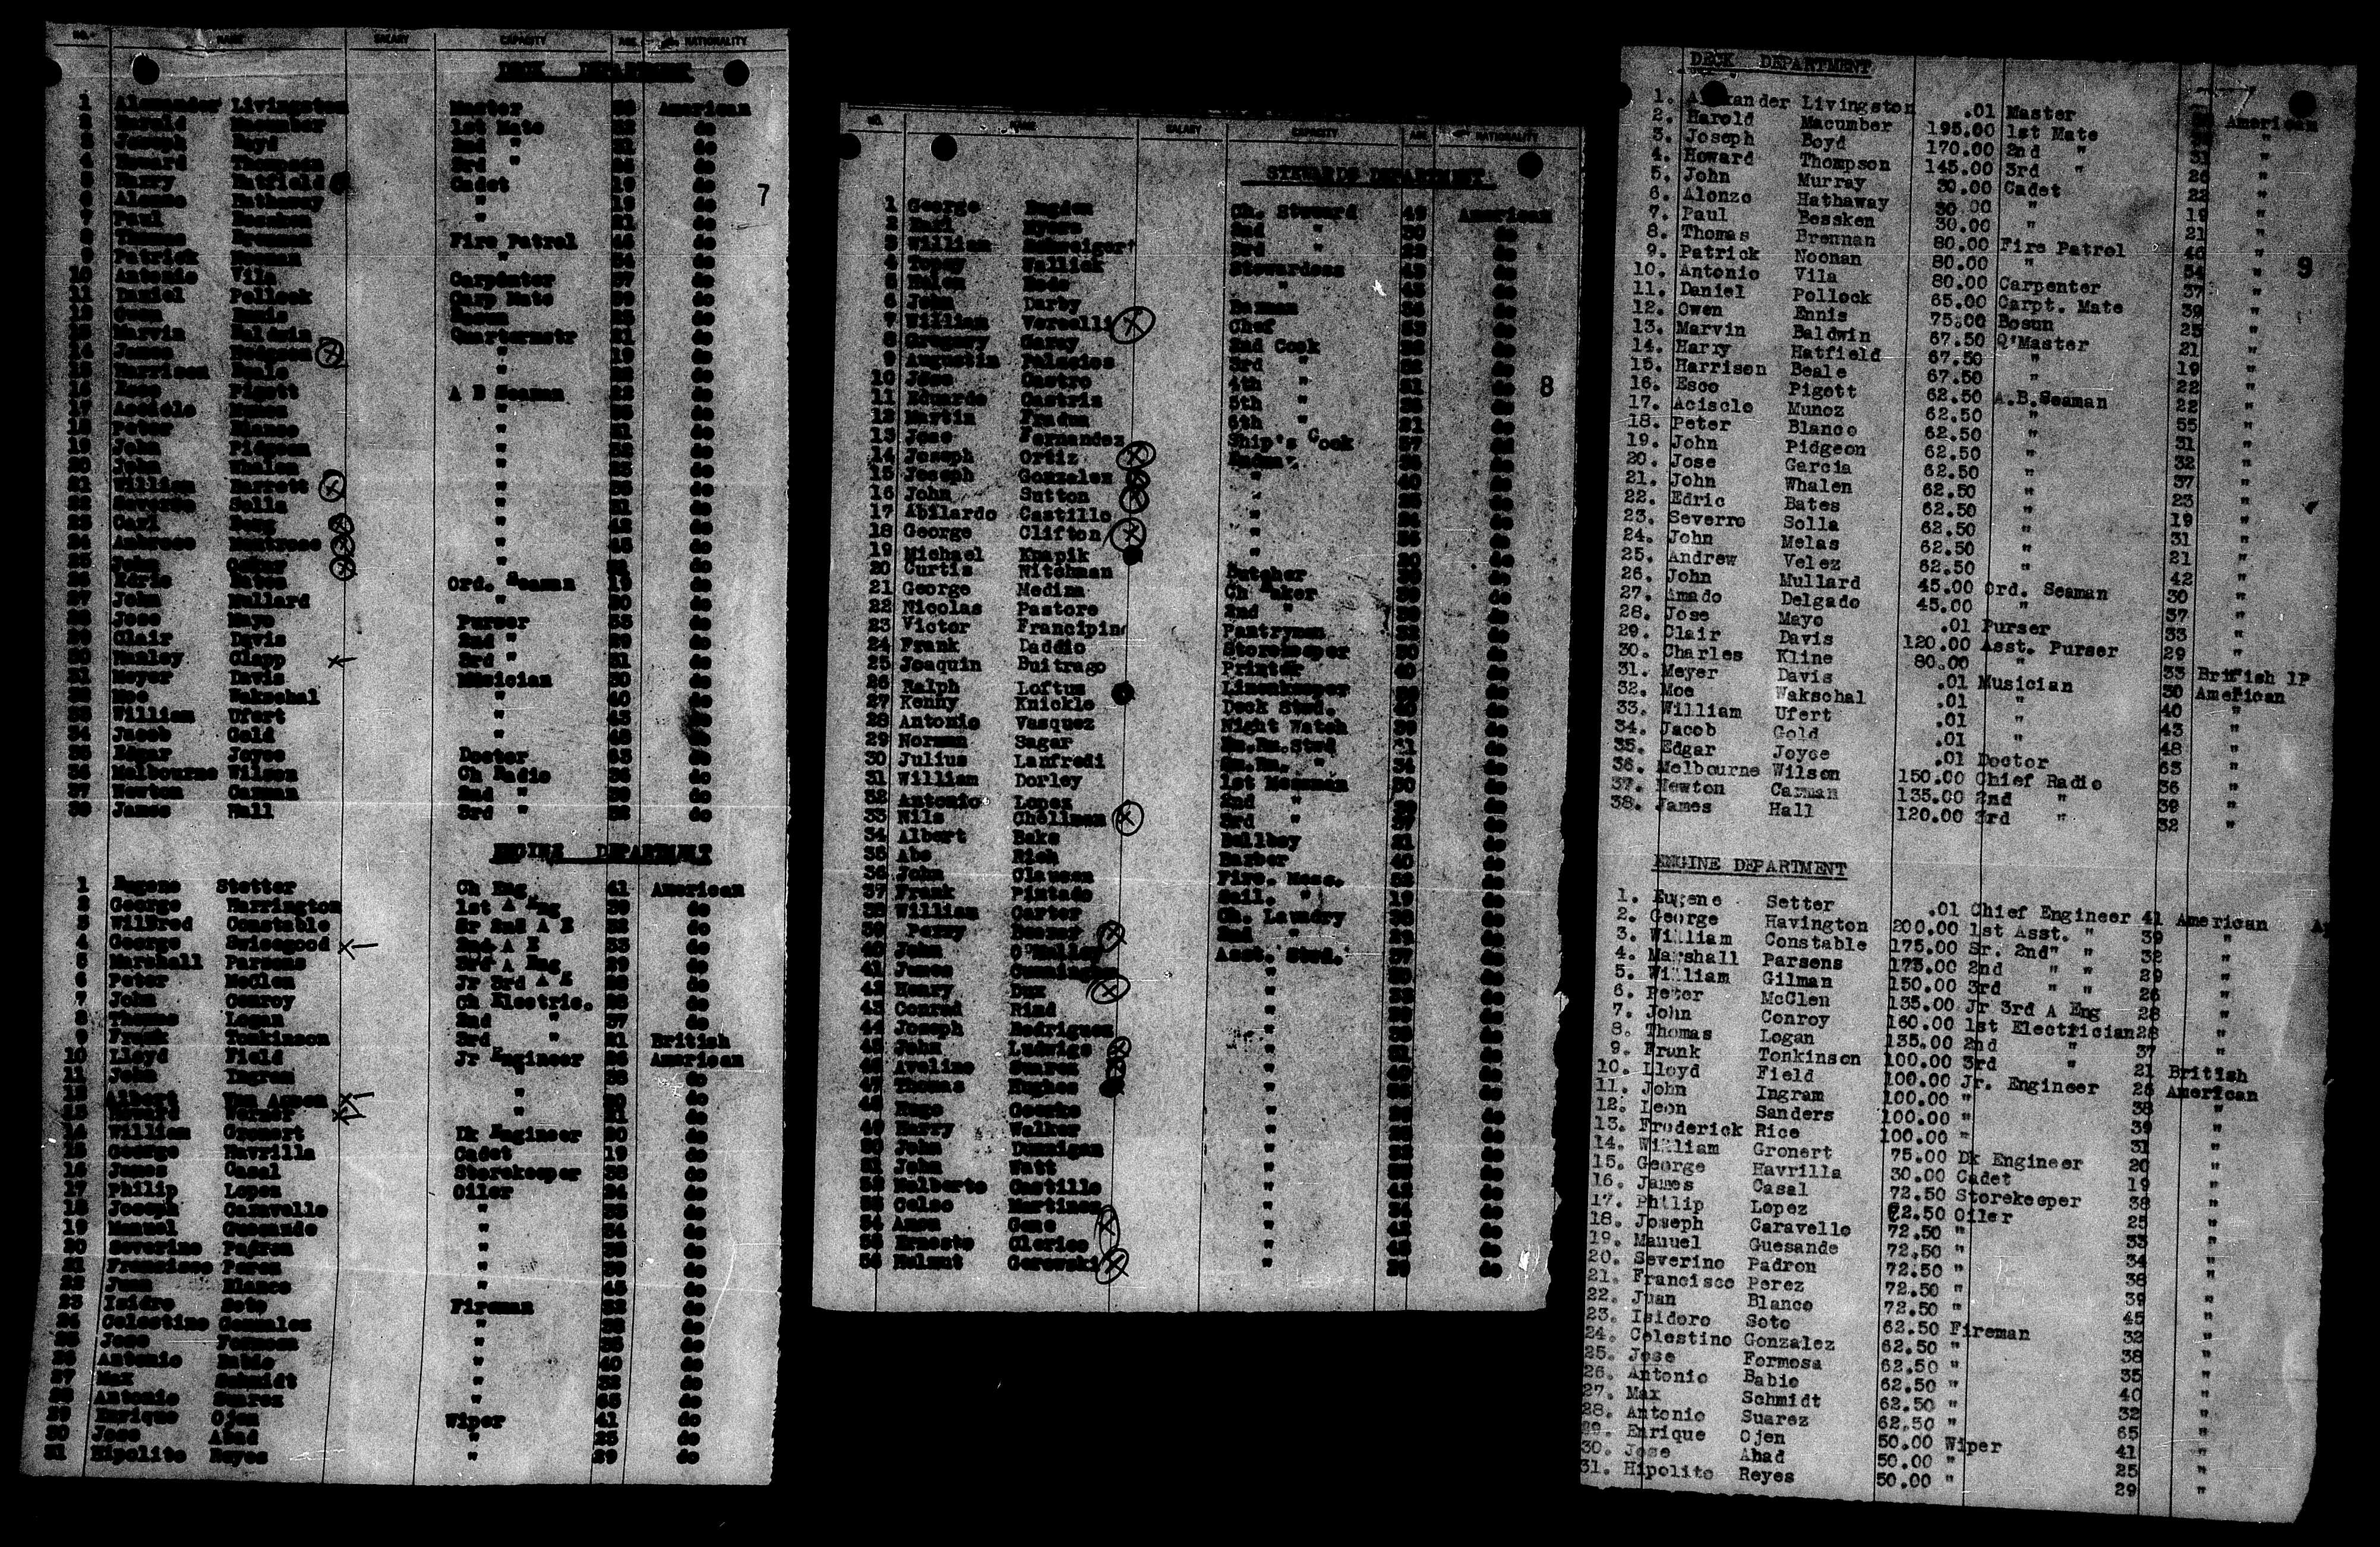 NO. NAME SALARY CAPACITY AGE NATIONALITY
DECK DEPARTMENT
1 Alexander Livingston Master American
2 Harold Macumber 1st Mate do
3 Joseph Boyd 2nd " do
4 Howard Thompson 3rd " do
5 Harry Hatfield Cadet 19 do
6 Alonzo Hathaway " 19 do
7 Paul Bessken " 21 do
8 Thomas Brennan Fire Patrol 46 do
9 Patrick Noonan " 54 do
10 Antonio Vila Carpenter 37 do
11 Daniel Pollock Carp Mate 39 do
12 Owen Ennis Bosun do
13 Marvin Baldwin Quartermstr 21 do
14 James " 19 do
15 Harrison Beale " do
16 Esco Pigott A B Seaman 22 do
17 Acisclo Munoz " do
18 Peter Blanco " do
19 John Pidgeon " 32 do
20 John Whalen " 23 do
21 William Barrett " do
22 Severro Solla " do
23 Carl Berg " do
24 Ambrose Montrose " do
25 John " do
26 Edric Bates Ord. Seaman 19 do
27 John Mullard " 30 do
28 Jose Mayo Purser 33 do
29 Clair Davis 2nd " 29 do
30 Clapp 3rd " 31 do
31 Meyer Davis Musician 30 do
32 Moe Wakschal " 40 do
33 William Ufert " 43 do
34 Jacob Gold " 48 do
35 Edgar Joyce Doctor 63 do
36 Melbourne Wilson Ch Radio 36 do
37 Newton Carman 2nd " 39 do
38 James Hall 3rd " 32 do
7
ENGINE DEPARTMENT
1 Eugene Stetter Ch Eng 41 American
2 George Harrington 1st A Eng 39 do
3 Wilfred Constable Sr 2nd A E 32 do
4 George Swisegood 2nd A E 33 do
5 Marshall Parsons 3rd A Eng 29 do
6 Peter McClen Jr 3rd A E 28 do
7 John Conroy Ch Electric. 28 do
8 Thomas Logan 2nd " 37 do
9 Frank Tonkinson 3rd " 21 British
10 Lloyd Field Jr Engineer 26 American
11 John Ingram " 38 do
12 Albert Van Assen " do
13 Edward Werner " do
14 William Gronert Dk Engineer 20 do
15 George Havrilla Cadet 19 do
16 James Casal Storekeeper 38 do
17 Philip Lopez Oiler 24 do
18 Joseph Caravello " 33 do
19 Manual Guesande " 34 do
20 Severino Padron " 38 do
21 Francisco Perez " 39 do
22 Juan Blanco " 45 do
23 Isidro Soto Fireman 32 do
24 Celestino Gonzalez " 38 do
25 Jose Formosa " 35 do
26 Antonio Babio " 40 do
27 Max Schmidt " 32 do
28 Antonio Suarez " 65 do
29 Enrique Ojen Wiper 41 do
30 Jose Abad " 25 do
31 Hipolito Reyes " 29 do
NO. NAME SALARY CAPACITY AGE NATIONALITY
STEWARDS DEPARTMENT
1 George Ch. Steward 49 American
2 Karl Myers 2nd " 30 do
3 William Schweigert 3rd " do
4 Wallick Stewardess 43 do
5 Helen " do
6 John Darby Barman do
7 William Vercelli Chef 53 do
8 Gregory Garay 2nd Cook do
9 Augustin Palacios 3rd " do
10 Jose Castro 4th " 21 do
11 Eduardo Castris 5th " do
12 Martin Pradun 6th " 31 do
13 Jose Fernandez Ship's Cook 37 do
14 Joseph Ortiz do
15 Joseph Gonzalez " 40 do
16 John Sutton " do
17 Abilardo Castillo " do
18 George Clifton " do
19 Michael Knapik " do
20 Curtis Nitchman Butcher do
21 George Medina Ch Baker do
22 Nicolas Pastore 2nd " do
23 Victor Francipine Pantryman do
24 Frank Daddio Storekeeper 30 do
25 Joaquin Buitrago Printer do
26 Ralph Loftus Linenkeeper do
27 Kenny Knickle Deck Stwd. do
28 Antonio Vasquez Night Watch do
29 Norman Sagar Sm.Rm.Stwd 31 do
30 Julius Lanfredi Sm.Rm. " 34 do
31 William Dorley 1st Messman 30 do
32 Antonio Lopez 2nd " do
33 Nils Chellman 3rd " 37 do
34 Albert Bake Bellboy 21 do
35 Abe Rich Barber 40 do
36 John Clausen Fire. Mess. do
37 Frank Pintado Sail. " 19 do
38 William Carter Ch. Laundry 38 do
39 Perry 2nd " do
40 John O'Malley Asst. Stwd. 37 do
41 James Cunningham " do
42 Henry Dux " do
43 Conrad Rind " do
44 Joseph Rodriguez " do
45 John Ludwigs " do
46 Avelino Suarez " do
47 Thomas Hughes " do
48 Hugo Goerke " do
49 Harry Walker " do
50 John Dunnigan " do
51 John Watt " do
52 Castillo " do
53 Celso Martinez " do
54 Amon Gene " do
55 Ernesto Clerico " do
56 Helmut Gorowski " do
8
DECK DEPARTMENT
1. Alexander Livingston .01 Master American
2. Harold Macumber 195.00 1st Mate "
3. Joseph Boyd 170.00 2nd " 31 "
4. Howard Thompson 145.00 3rd " 26 "
5. John Murray 30.00 Cadet 22 "
6. Alonzo Hathaway 30.00 " 19 "
7. Paul Bessken 30.00 " 21 "
8. Thomas Brennan 80.00 Fire Patrol 46 "
9. Patrick Noonan 80.00 " 54 "
10. Antonio Vila 80.00 Carpenter 37 "
11. Daniel Pollock 65.00 Carpt. Mate 39 "
12. Owen Ennis 75.00 Bosun 25 "
13. Marvin Baldwin 67.50 Q'Master 21 "
14. Harry Hatfield 67.50 " 19 "
15. Harrison Beale 67.50 " 22 "
16. Esco Pigott 62.50 A.B.Seaman 22 "
17. Acisclo Munoz 62.50 " 55 "
18. Peter Blanco 62.50 " 31 "
19. John Pidgeon 62.50 " 32 "
20. Jose Garcia 62.50 " 37 "
21. John Whalen 62.50 " 23 "
22. Edric Bates 62.50 " 19 "
23. Severro Solla 62.50 " 31 "
24. John Melas 62.50 " 21 "
25. Andrew Velez 62.50 " 42 "
26. John Mullard 45.00 Ord. Seaman 30 "
27. Amado Delgado 45.00 " 37 "
28. Jose Mayo .01 Purser 33 "
29. Clair Davis 120.00 Asst. Purser 29 "
30. Charles Kline 80.00 " 33 British 1P
31. Meyer Davis .01 Musician 30 American
32. Moe Wakschal .01 " 40 "
33. William Ufert .01 " 43 "
34. Jacob Gold .01 " 48 "
35. Edgar Joyce .01 Doctor 63 "
36. Melbourne Wilson 150.00 Chief Radio 36 "
37. Newton Carman 135.00 2nd " 39 "
38. James Hall 120.00 3rd " 32 "
9
ENGINE DEPARTMENT
1. Eugene Setter .01 Chief Engineer 41 American
2. George Havington 200.00 1st Asst. " 39 "
3. William Constable 175.00 Sr. 2nd" " 32 "
4. Marshall Parsens 175.00 2nd " " 29 "
5. William Gilman 150.00 3rd " " 26 "
6. Peter McClen 135.00 Jr 3rd A Eng 28 "
7. John Conroy 160.00 1st Electrician 28 "
8. Thomas Logan 135.00 2nd " 37 "
9. Frank Tonkinson 100.00 3rd " 21 British
10. Lloyd Field 100.00 Jr. Engineer 26 American
11. John Ingram 100.00 " 38 "
12. Leon Sanders 100.00 " 39 "
13. Frederick Rice 100.00 " 31 "
14. William Gronert 75.00 Dk Engineer 20 "
15. George Havrilla 30.00 Cadet 19 "
16. James Casal 72.50 Storekeeper 38 "
17. Philip Lopez 72.50 Oiler 25 "
18. Joseph Caravello 72.50 " 33 "
19. Manuel Guesande 72.50 " 34 "
20. Severino Padron 72.50 " 38 "
21. Francisco Perez 72.50 " 39 "
22. Juan Blanco 72.50 " 45 "
23. Isidoro Soto 62.50 Fireman 32 "
24. Celestino Gonzalez 62.50 " 38 "
25. Jose Formosa 62.50 " 35 "
26. Antonio Babio 62.50 " 40 "
27. Max Schmidt 62.50 " 32 "
28. Antonio Suarez 62.50 " 65 "
29. Enrique Ojen 50.00 Wiper 41 "
30. Jose Abad 50.00 " 25 "
31. Hipolito Reyes 50.00 " 29 "